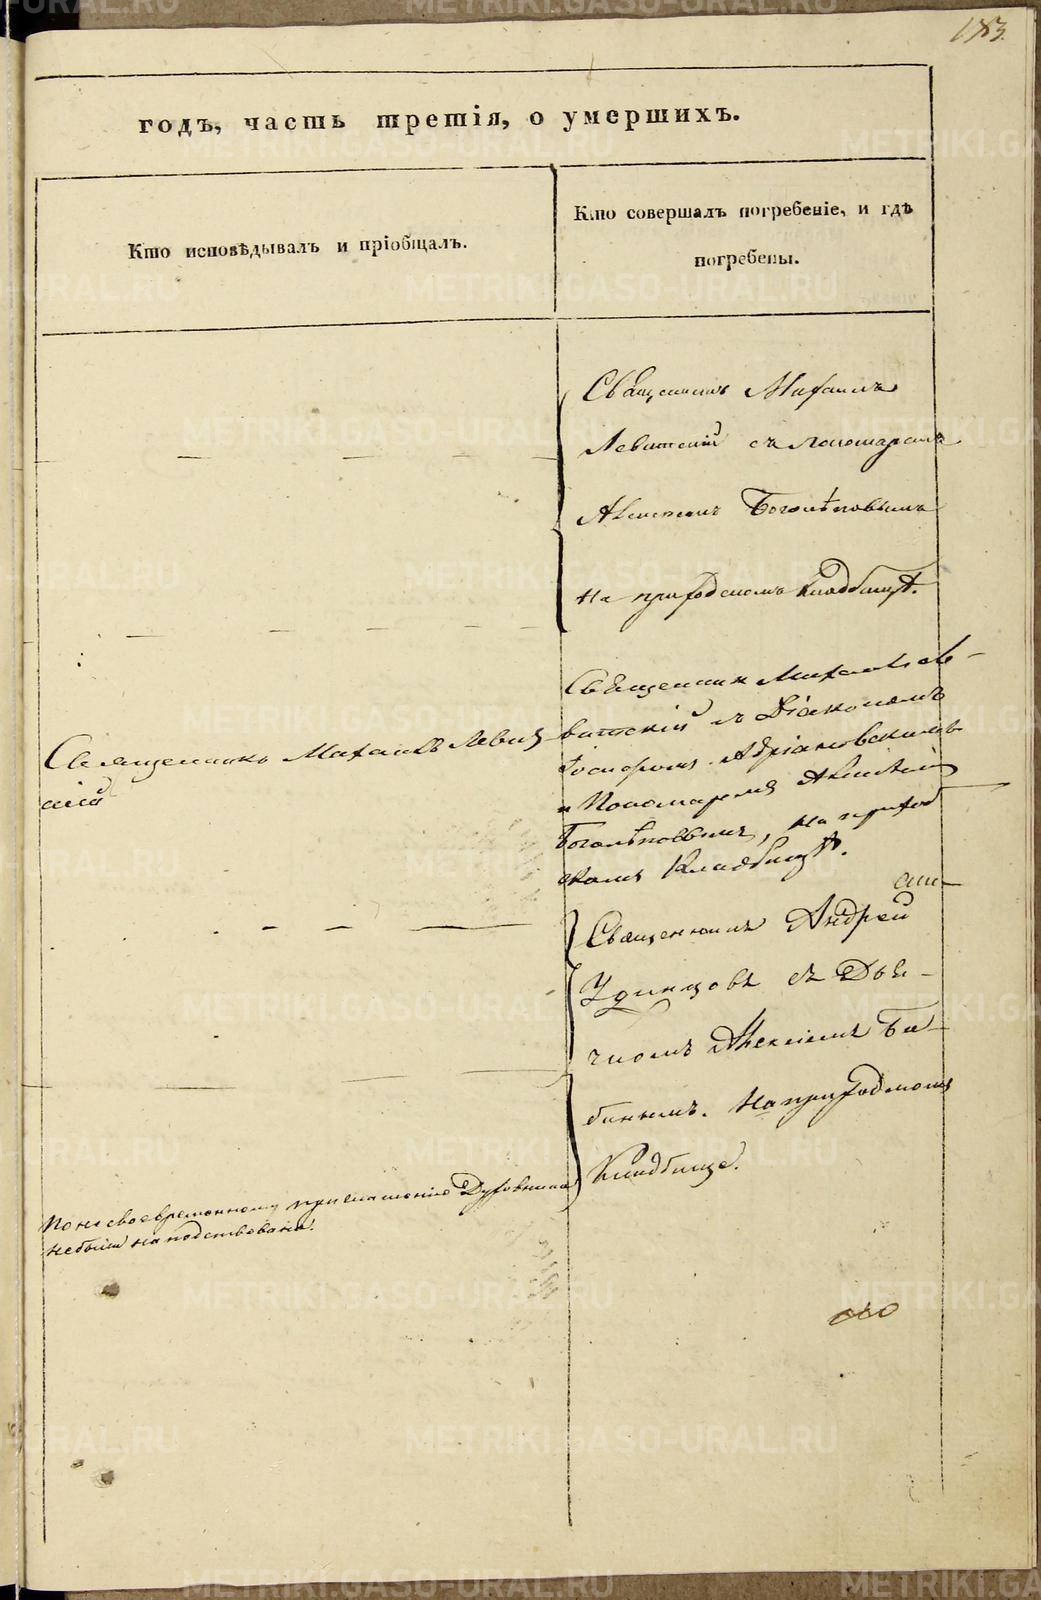 183.
годъ, часть третія, о умершихъ.
Кто исповѣдывалъ и пріобщалъ.
Кто совершалъ погребеніе, и гдѣ
погребены.
Священникъ Михаилъ
Левитскій съ пономаремъ
Алексѣемъ Боголѣповымъ
на приходскомъ кладбищѣ.
Священникъ Михаилъ Ле-
витскій съ Діакономъ
Адріановскимъ
и Пономаремъ Алексѣемъ
Боголѣповымъ, на приход
скомъ Кладбищѣ.
Священникъ Михаилъ Левит
скій
Священникъ Андрей
Удинцовъ съ Дья-
чкомъ Алексіемъ Ба-
бинымъ. На приходскомъ
Кладбище.
По не своевременному приглашенію Духовника
небыли напутствованы.
METRIKI.GASO-URAL.RU